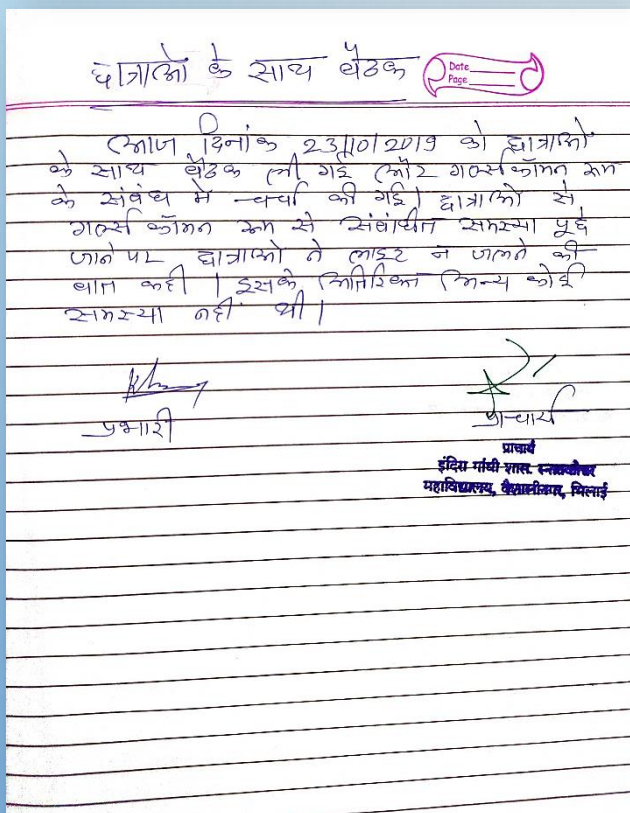 छात्राओं के साथ बैठक
Date
Page
आज दिनांक 23/10/2019 को छात्राओं
के साथ बैठक ली गई और गर्ल्स कॉमन रूम
के संबंध में चर्चा की गई। छात्राओं से
गर्ल्स कॉमन रूम से संबंधित समस्या पूछे
जाने पर छात्राओं ने लाइट न जलने की
बात कही। इसके अतिरिक्त अन्य कोई
समस्या नहीं थी।
प्रभारी
प्राचार्य
प्राचार्य
इंदिरा गांधी शास. स्नातकोत्तर
महाविद्यालय, वैशालीनगर, भिलाई